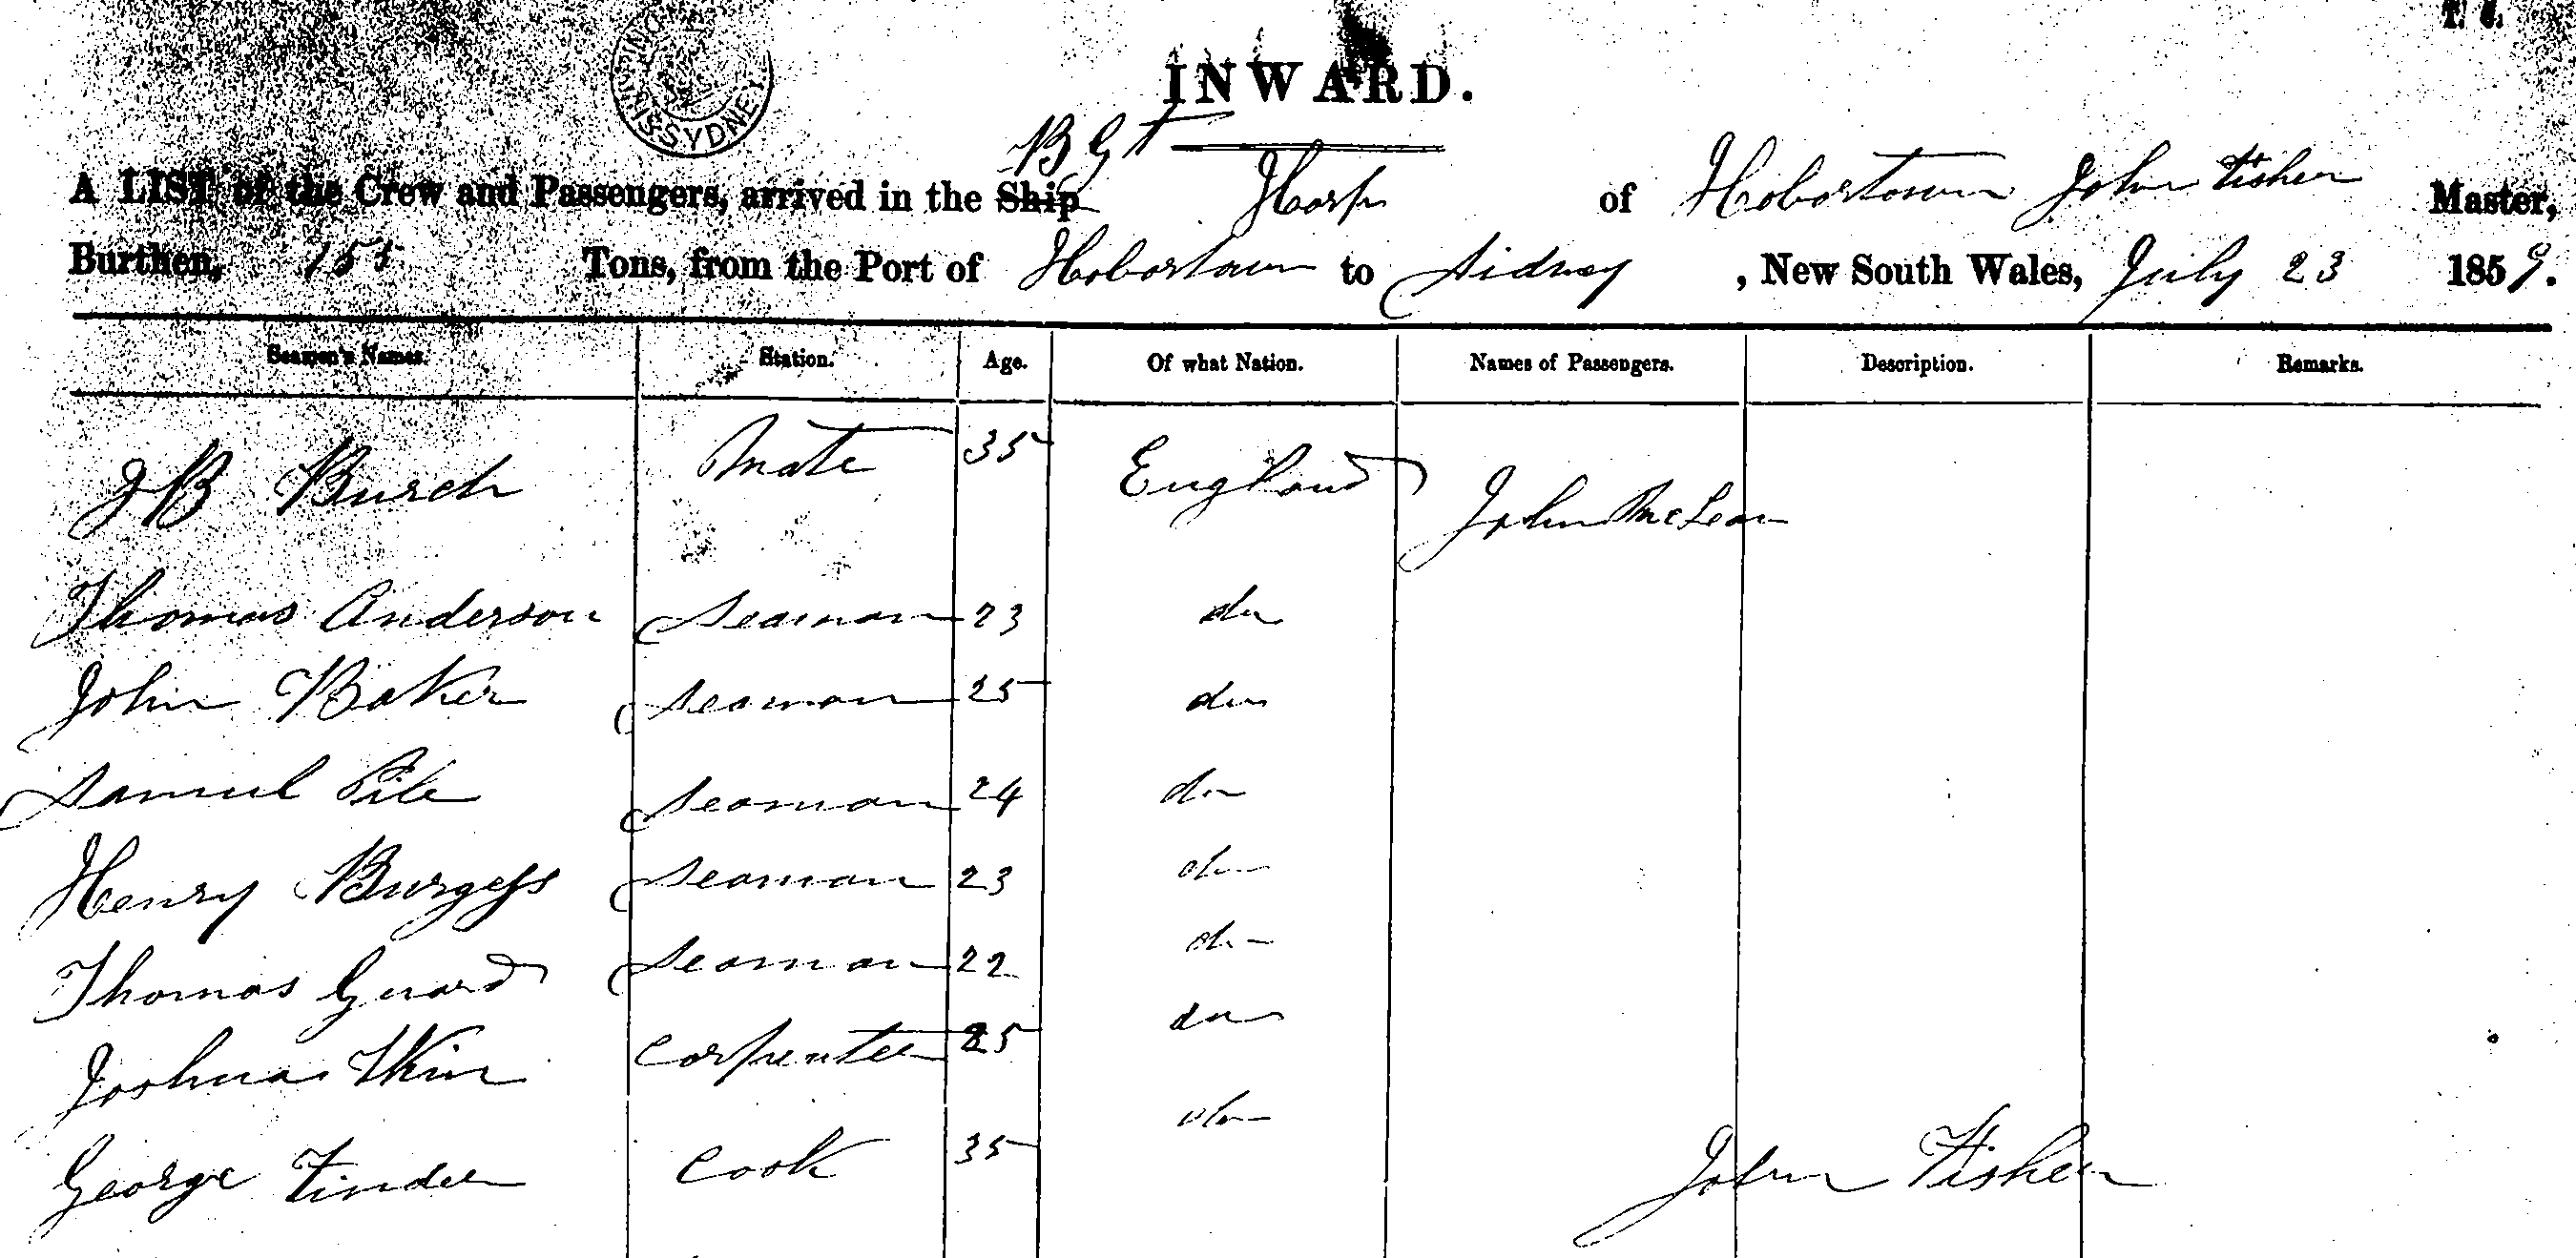 T. C.
SHIPPING SYDNEY
INWARD.
BGt
A LIST of the Crew and Passengers, arrived in the Ship Harp of Hobartown John Fisher Master,
Burthen, Tons, from the Port of Hobartown to Sidney, New South Wales, July 23 1859.
Seamen's Names. Station. Age. Of what Nation. Names of Passengers. Description. Remarks.
J B Burch Mate 35 England John McLean
Thomas Anderson Seaman 23 do
John Baker Seaman 25 do
Samuel Seaman 24 do
Henry Burgess Seaman 23 do
Thomas Seaman 22 do
Joshua Carpenter 25 do
George Cook 35 do
John Fisher